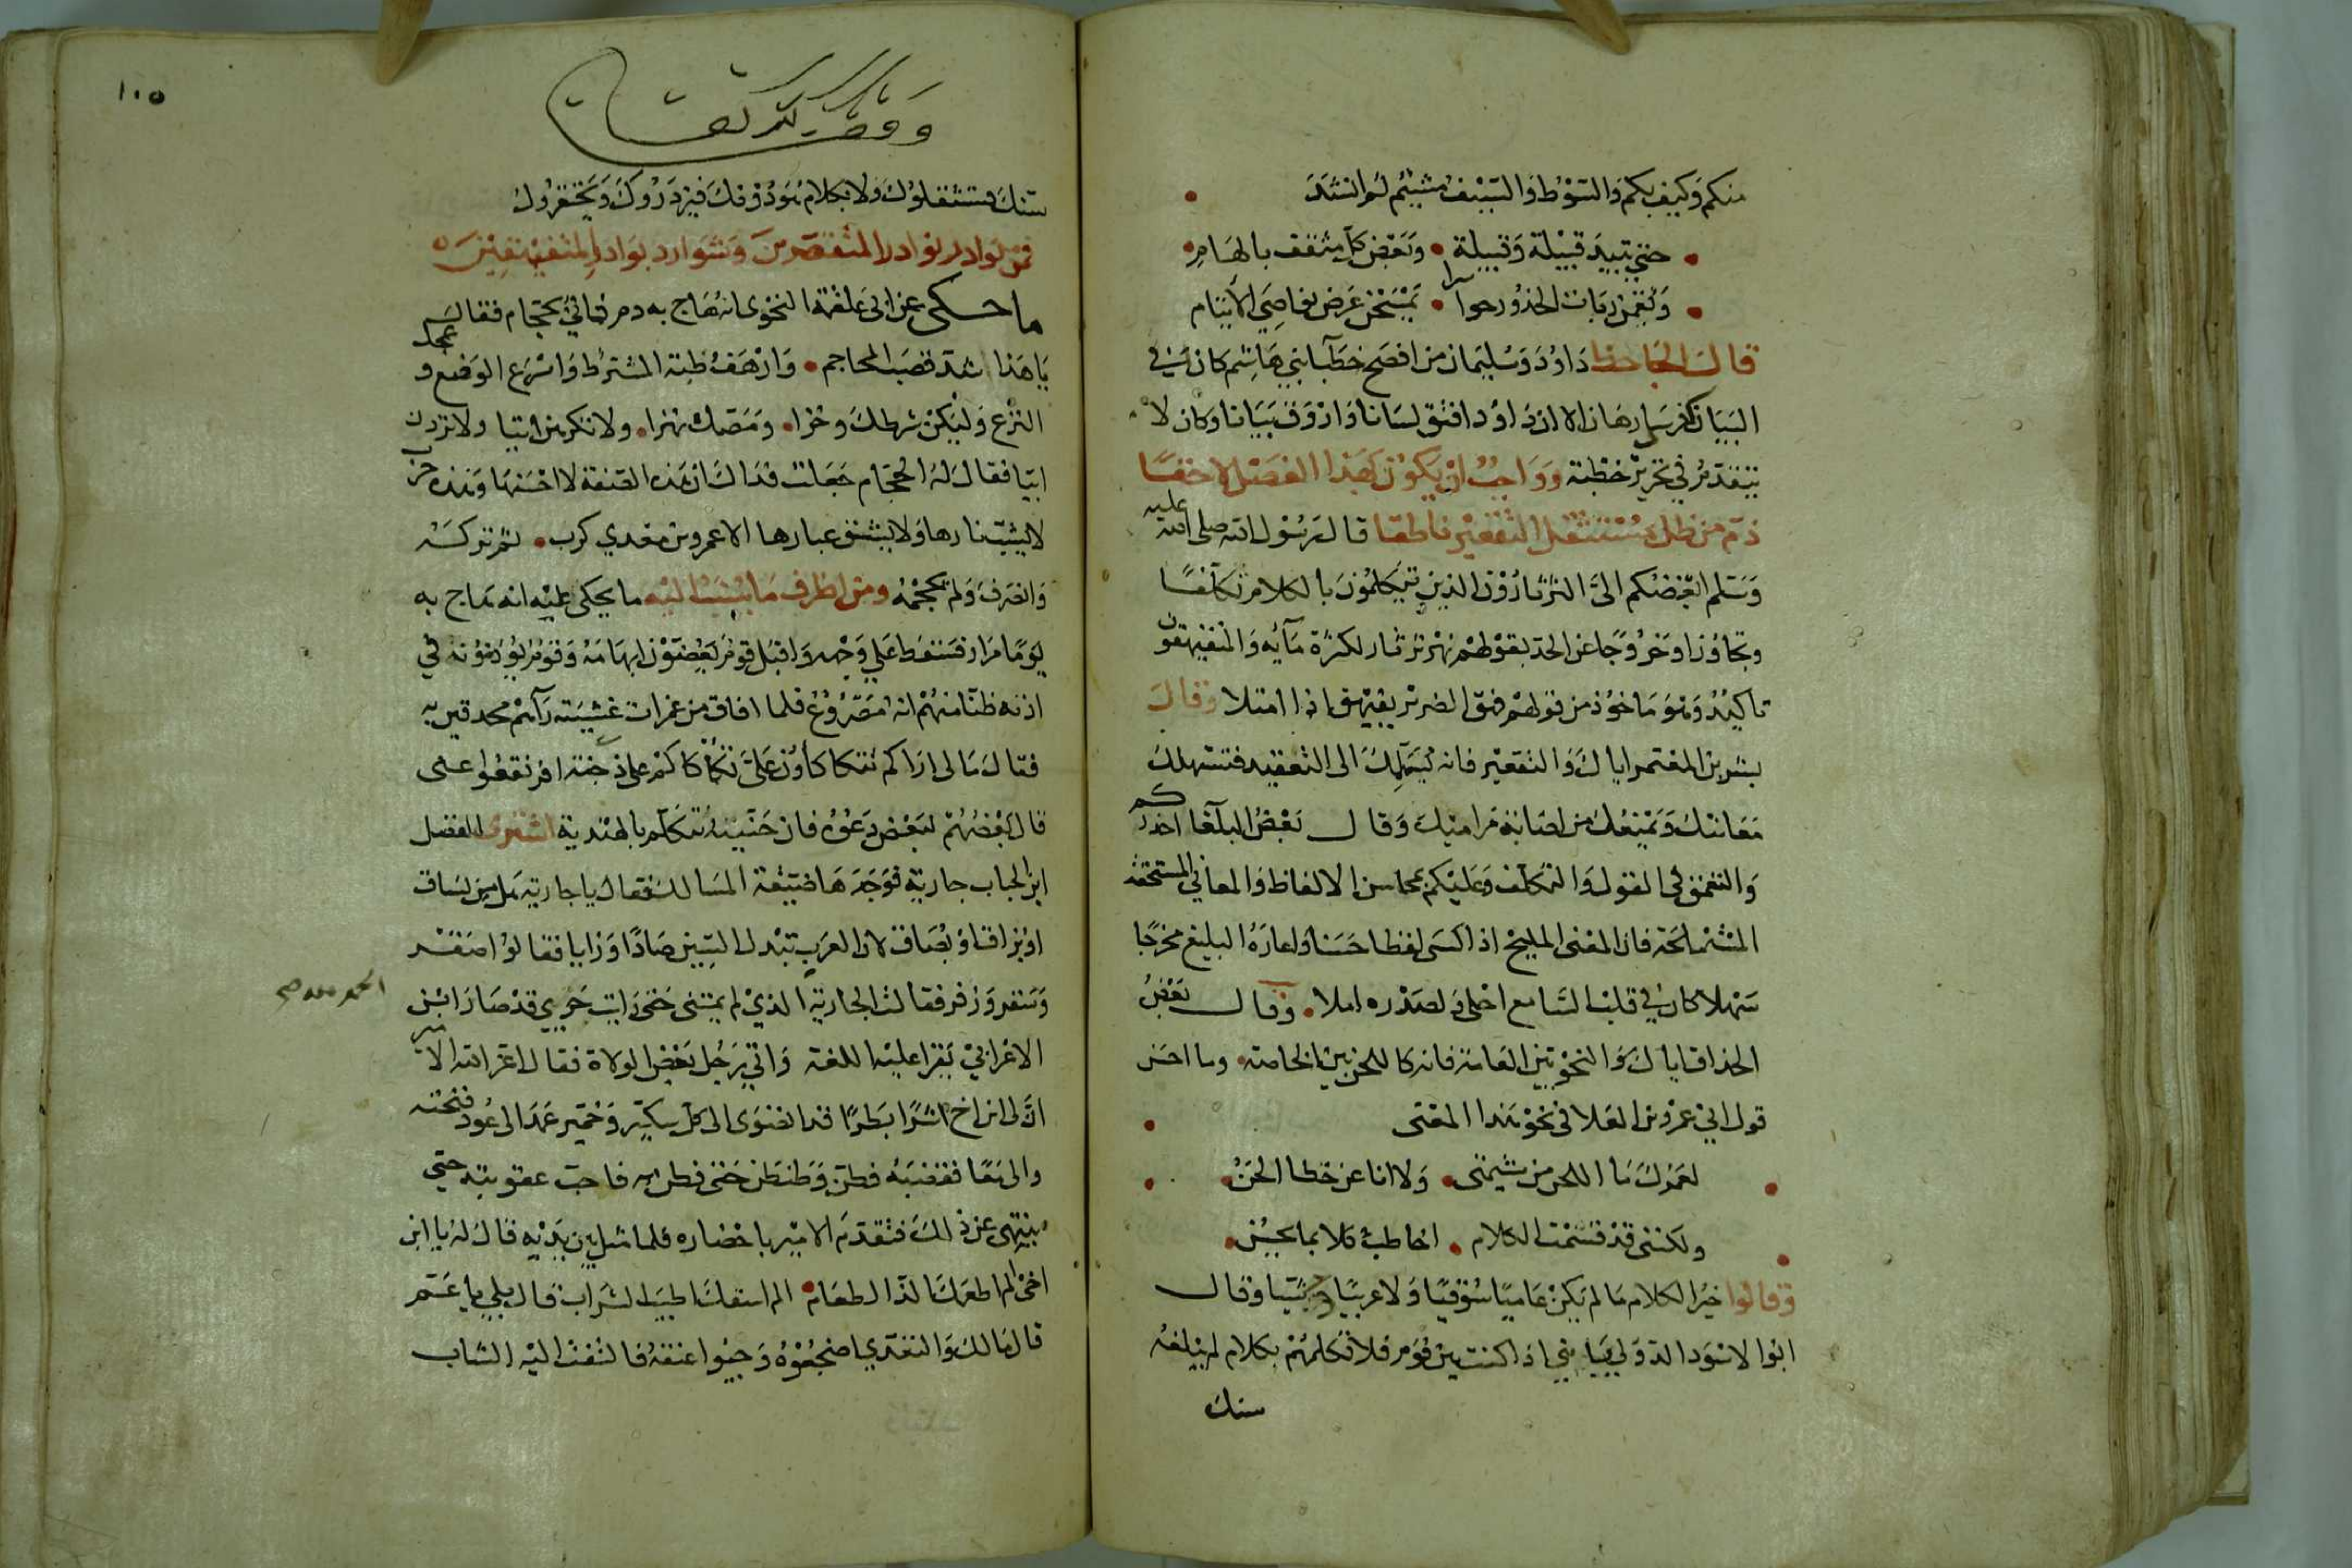 منكم وكيف بكم والسوط والسيف مشيتم لو انشد
حتى تبيد قبيلة وقبيلة ويعض كل مثقف بالهام
ويقمن ربات الخدور حواسرا يمسحن عرض نواصي الايتام
قال الجاحظ داود وسليمان من افصح خطبا بني هاشم كان في
البيان كفرسي رهان الا ان داود افتق لسانا واروق بيانا وكان لا
يتقدم في تحرير خطبة وواجب ان يكون لهذا الفصل لاحقا
ذم من ظل التقعير ناطقا قال رسول الله صلى الله عليه
وسلم ابغضكم الي الثرثارون الذين يتكلمون بالكلام تكلفا
وتجاوزا وخروجا عن الحد بقولهم نهر ثرثار لكثرة مآيه والمتفيهقون
تاكيد وهو ماخوذ من قولهم فهق يفيهق اذا امتلا وقال
بشر بن المعتمر اياك والتقعير فانه يسلمك الى التعقيد فتستهلك
معانيك ويمنعك من اصابة مراميك وقال بعض البلغا احذركم
والتعمق في القول والتكلف وعليكم بمحاسن الالفاظ والمعاني المستخفة
المستملحة فان المعنى المليح اذا اكسى لفظا حسنا واعاره البليغ مخرجا
سهلا كان في قلب السامع احلى ولصدره املا وقال بعض
الحذاق اياك والنحو بين العامة فانه كاللحن بين الخاصة وما احسن
قول ابي عمرو بن العلا في نحو هذا المعنى
لعمرك ما اللحن من شيمتى ولا انا عن خطا الحن
ولكننى قد قسمت الكلام اخاطب كلا بما يحسن
وقالوا خير الكلام ما لم يكن عاميا سوقيا ولا عربيا وحشيا وقال
ابوا الاسود الدولي يا بني اذا كنت بين قوم فلا تكلمهم بكلام لم يبلغه
سنك
١٠٥
سنك فتستثقلوك ولا بكلام هو دونك فيزدروك ويحتقرونك
فمن نوادر نوادر المتقعرين وشوارد بوادر المتفيهقين
ما حكى عن ابي علقمة النحوى انه هاج به دم فاتي بحجام فقال
يا هذا اشدد قصب المحاجم وارهف ظبة المشرط واسرع الوضع وعجل
النزع وليكن شرطك وخزا ومصك نهزا ولا تكرهن ابيا ولا تردن
اتيا فقال له الحجام جعلت فداك ان هذه الصنعة لا احسنها وهذه حرب
لا يشب نارها ولا ينشق غبارها الا عمرو بن معدي كرب ثم تركه
وانصرف ولم يحجمه ومن اظرف ما ينسب اليه ما يحكى عليه انه هاج به
يوما مرار فسقط على وجهه واقبل قوم يعضون ابهامه وقوم يؤذنون في
اذنه ظنا منهم انه مصروع فلما افاق من غمرات غشيته رآهم محدقين به
فقال مالى اراكم تتكاكأون علي تكأكأكم على ذي جنة افرنقعوا عنى
قال بعضهم لبعض دعوه فان جنيته تتكلم بالهندية اشترى الفضل
ابن الحباب جارية فوجدها ضيقة المسالك فقال يا جارية هل من بساق
او بزاق او بصاق لان العرب تبدل السين صادا وزايا فقالوا صقر
وسقر وزقر فقالت الجارية الذي لم يمتنى حتى رايت حري قد صار ابن
الحمد لله صح
الاعرابي يقرا عليه اللغة واتي رجل بعض الولاة فقال اعز الله الامير
ان لى ابن اخ اشرا بطرا قد انضوى الى كل سكير وخمير عمد الى عود فنحته
والى معا فقضبه فطن وطنطن حتى فطن به فاحب عقوبته حتى
ينتهي عن ذلك فتقدم الامير باحضاره فلما مثل بين يديه قال له يا ابن
اخى الم اطعمك الذ الطعام الم اسقك اطيب الشراب قال بلى يا عم
قال مالك والتعدي اضجعوه وجيوا عنقه فالتفت اليه الشاب